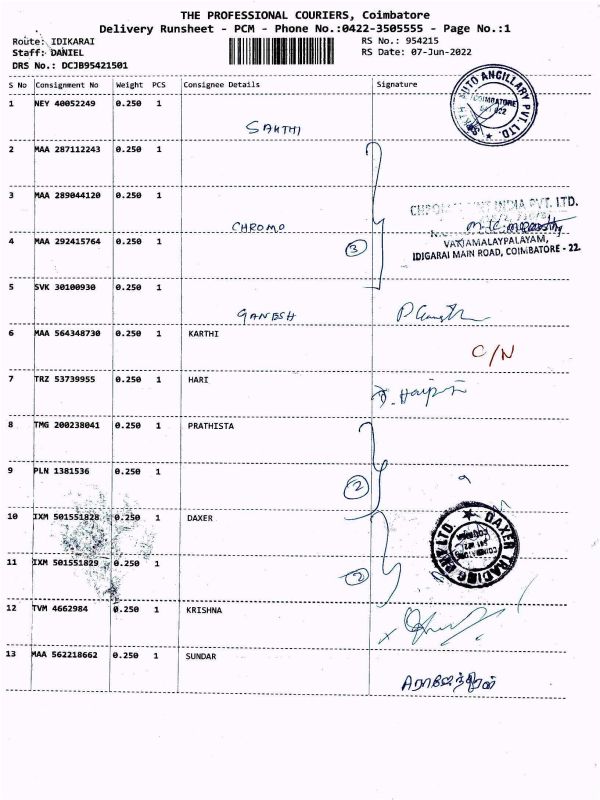 THE PROFESSIONAL COURIERS, Coimbatore
Delivery Runsheet - PCM - Phone No.:0422-3505555 - Page No.:1
Route: IDIKARAI RS No.: 954215
Staff: DANIEL RS Date: 07-Jun-2022
DRS No.: DCJB95421501
S No Consignment No Weight PCS Consignee Details Signature
1 NEY 40052249 0.250 1 SAKTHI
AUTO ANCILLARY PVT. LTD. COIMBATORE
2 MAA 287112243 0.250 1
3 MAA 289044120 0.250 1 CHROMO
INDIA PVT. LTD.
4 MAA 292415764 0.250 1 3
VAIYAMALAYPALAYAM,
IDIGARAI MAIN ROAD, COIMBATORE - 22
5 SVK 30100930 0.250 1 GANESH
6 MAA 564348730 0.250 1 KARTHI C/N
7 TRZ 53739955 0.250 1 HARI
8 TMG 200238041 0.250 1 PRATHISTA
9 PLN 1381536 0.250 1 2
10 IXM 501551828 0.250 1 DAXER
DAXER TRADING PVT LTD. COIMBATORE
11 IXM 501551829 0.250 1 2
12 TVM 4662984 0.250 1 KRISHNA
13 MAA 562218662 0.250 1 SUNDAR